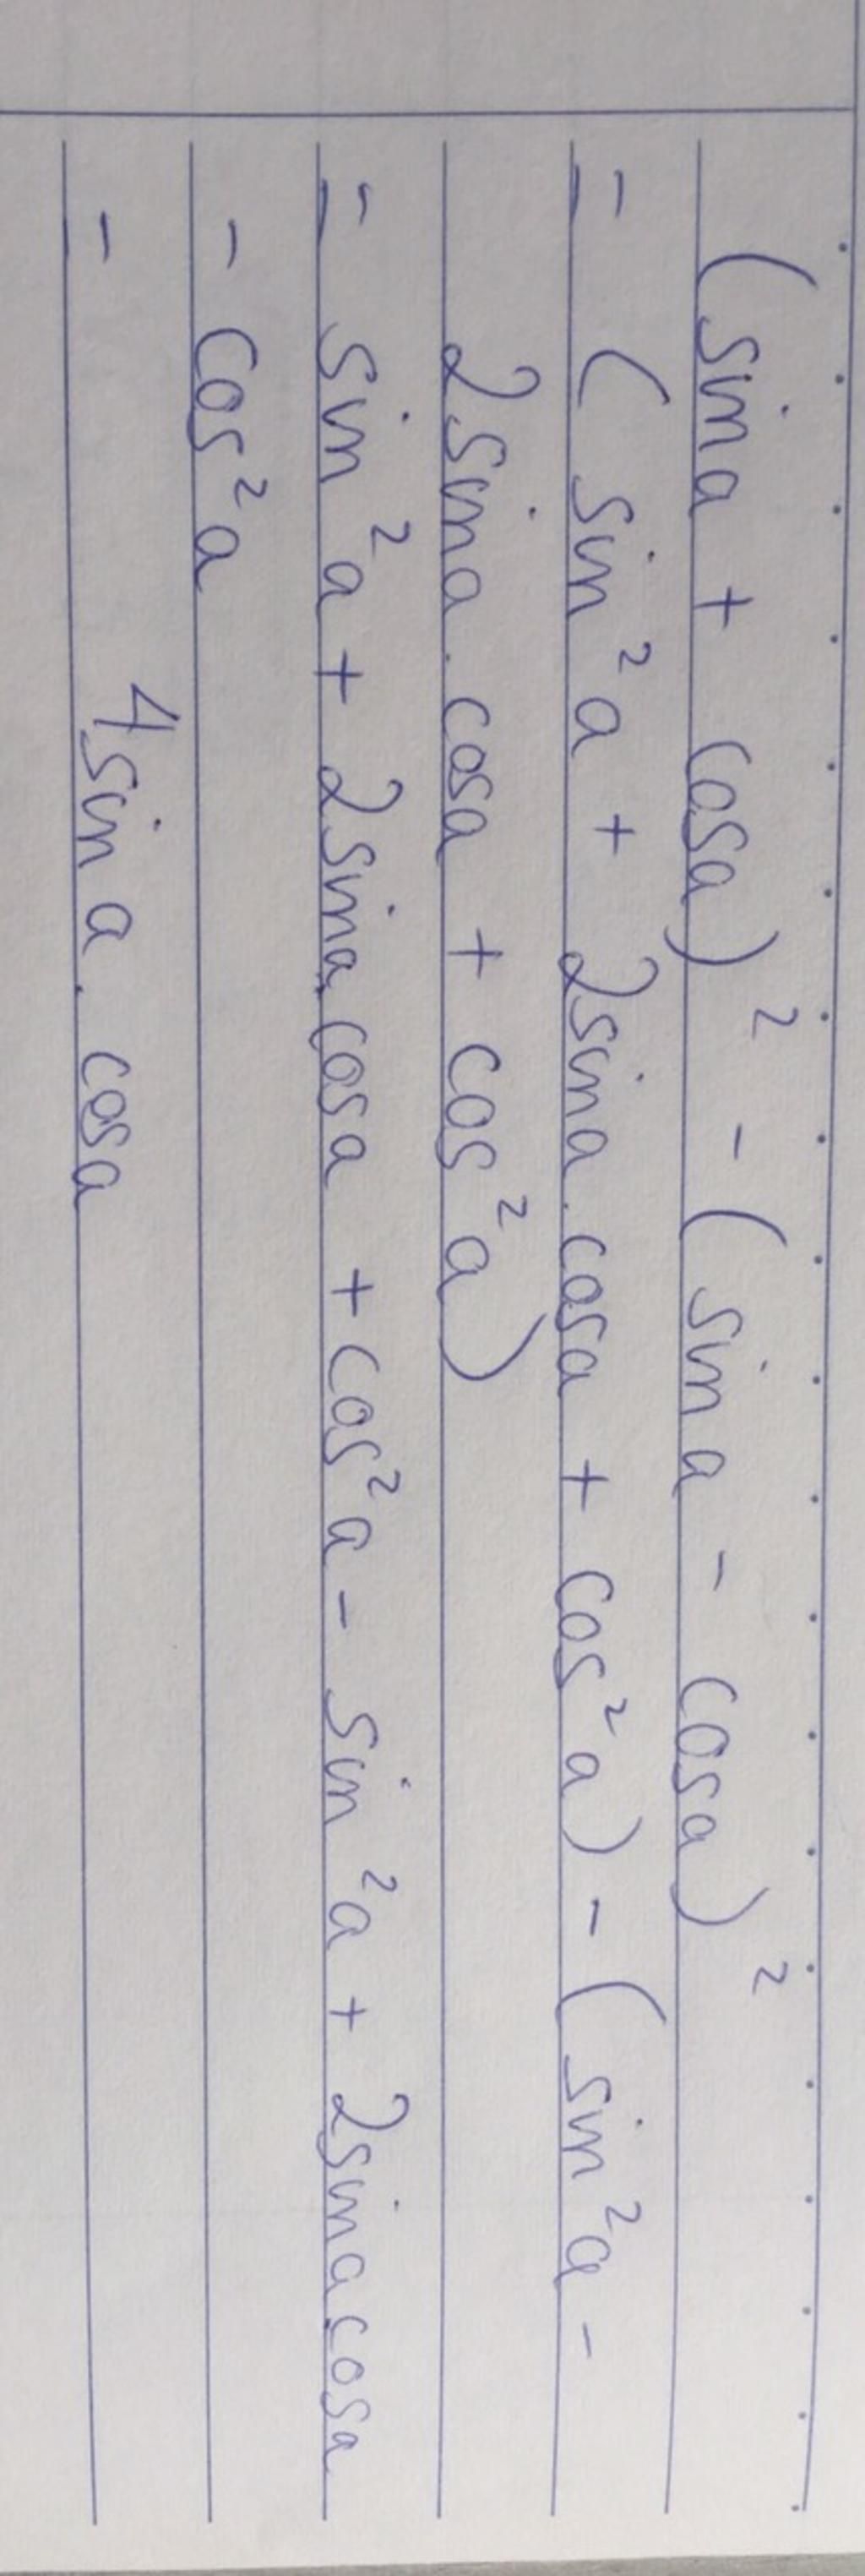 (sina + cosa)² - (sina - cosa)²
= (sin²a + 2sina.cosa + cos²a) - (sin²a -
2sina.cosa + cos²a)
= sin²a + 2sina.cosa + cos²a - sin²a + 2sinacosa
- cos²a
= 4sina.cosa